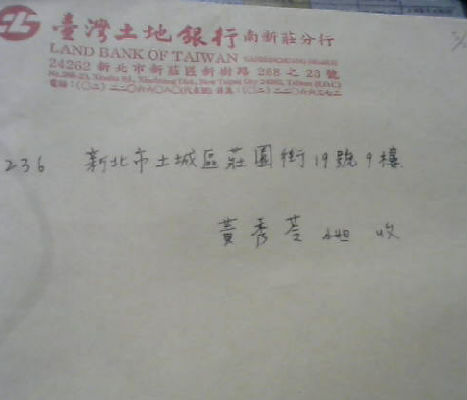 臺灣土地銀行 南新莊分行
LAND BANK OF TAIWAN NANHSINCHUANG BRANCH
24262 新北市新莊區新樹路 268 之 23 號
236 新北市土城區莊園街19號9樓
黃秀苓 小姐 收